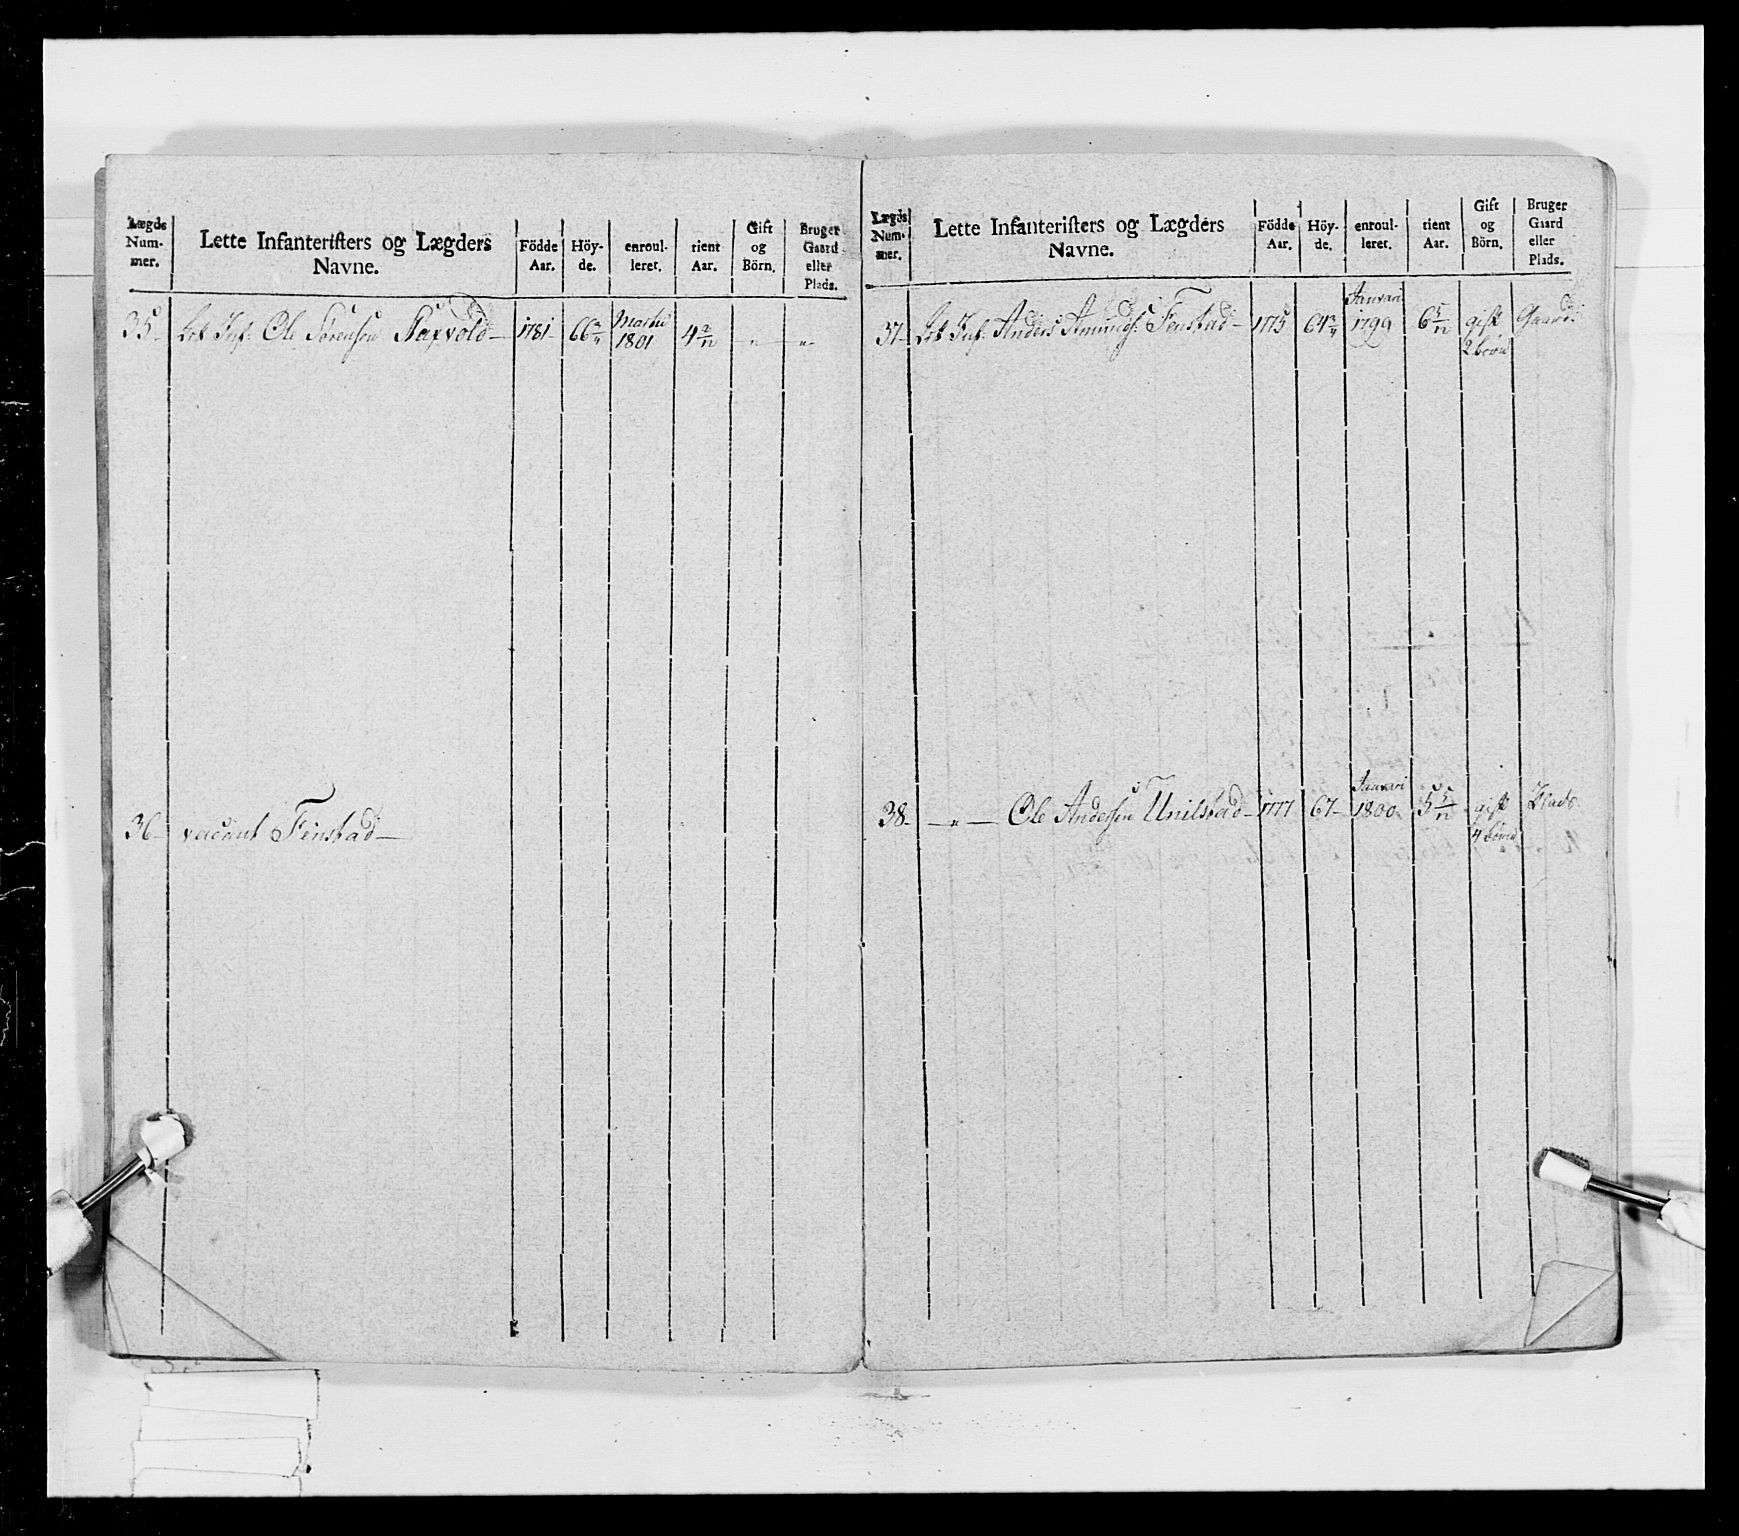 Lægds
Num-
mer.
Lette Infanteristers og Lægders
Navne.
Födde
Aar.
Höy-
de.
enroul-
leret.
tient
Aar.
Gift
og
Börn.
Bruger
Gaard
eller
Plads.
35 Let Inf: Ole Sörensen 1781 66 1801 4 2/12 " "
36 vacant Finstad
Lægds
Num-
mer.
Lette Infanteristers og Lægders
Navne.
Födde
Aar.
Höy-
de.
enroul-
leret.
tient
Aar.
Gift
og
Börn.
Bruger
Gaard
eller
Plads.
Januari
37 Let Inf: Anders Amunds: Finstad 1775 64 1799 6 5/12 gift Gaard:
2 börn
Januari
38 — " — Ole Andersen 1777 67 1800 5 5/12 gift Plads
4 börn